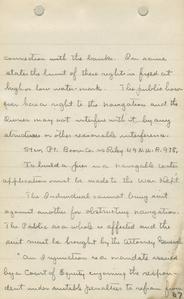 connection with the banks. In some
states the limit of these right is fixed at
high or low water mark. The public how-
ever has a right to the navigation and the
owner may not interfere with it by any
structures or other reasonable interference.
Stern Pt. Boom Co. vs Riley 49 N.W. R. 978.
To build a pier in a navigable water
application must be made to the War Dept.
The Individual cannot bring suit
against another for obstructing navigation.
The Public as a whole is affected and the
suit must be brought by the Attorney General.
"An injunction is a mandate issued
by a Court of Equity enjoining the respon-
dent under suitable penalties to refrain from
87